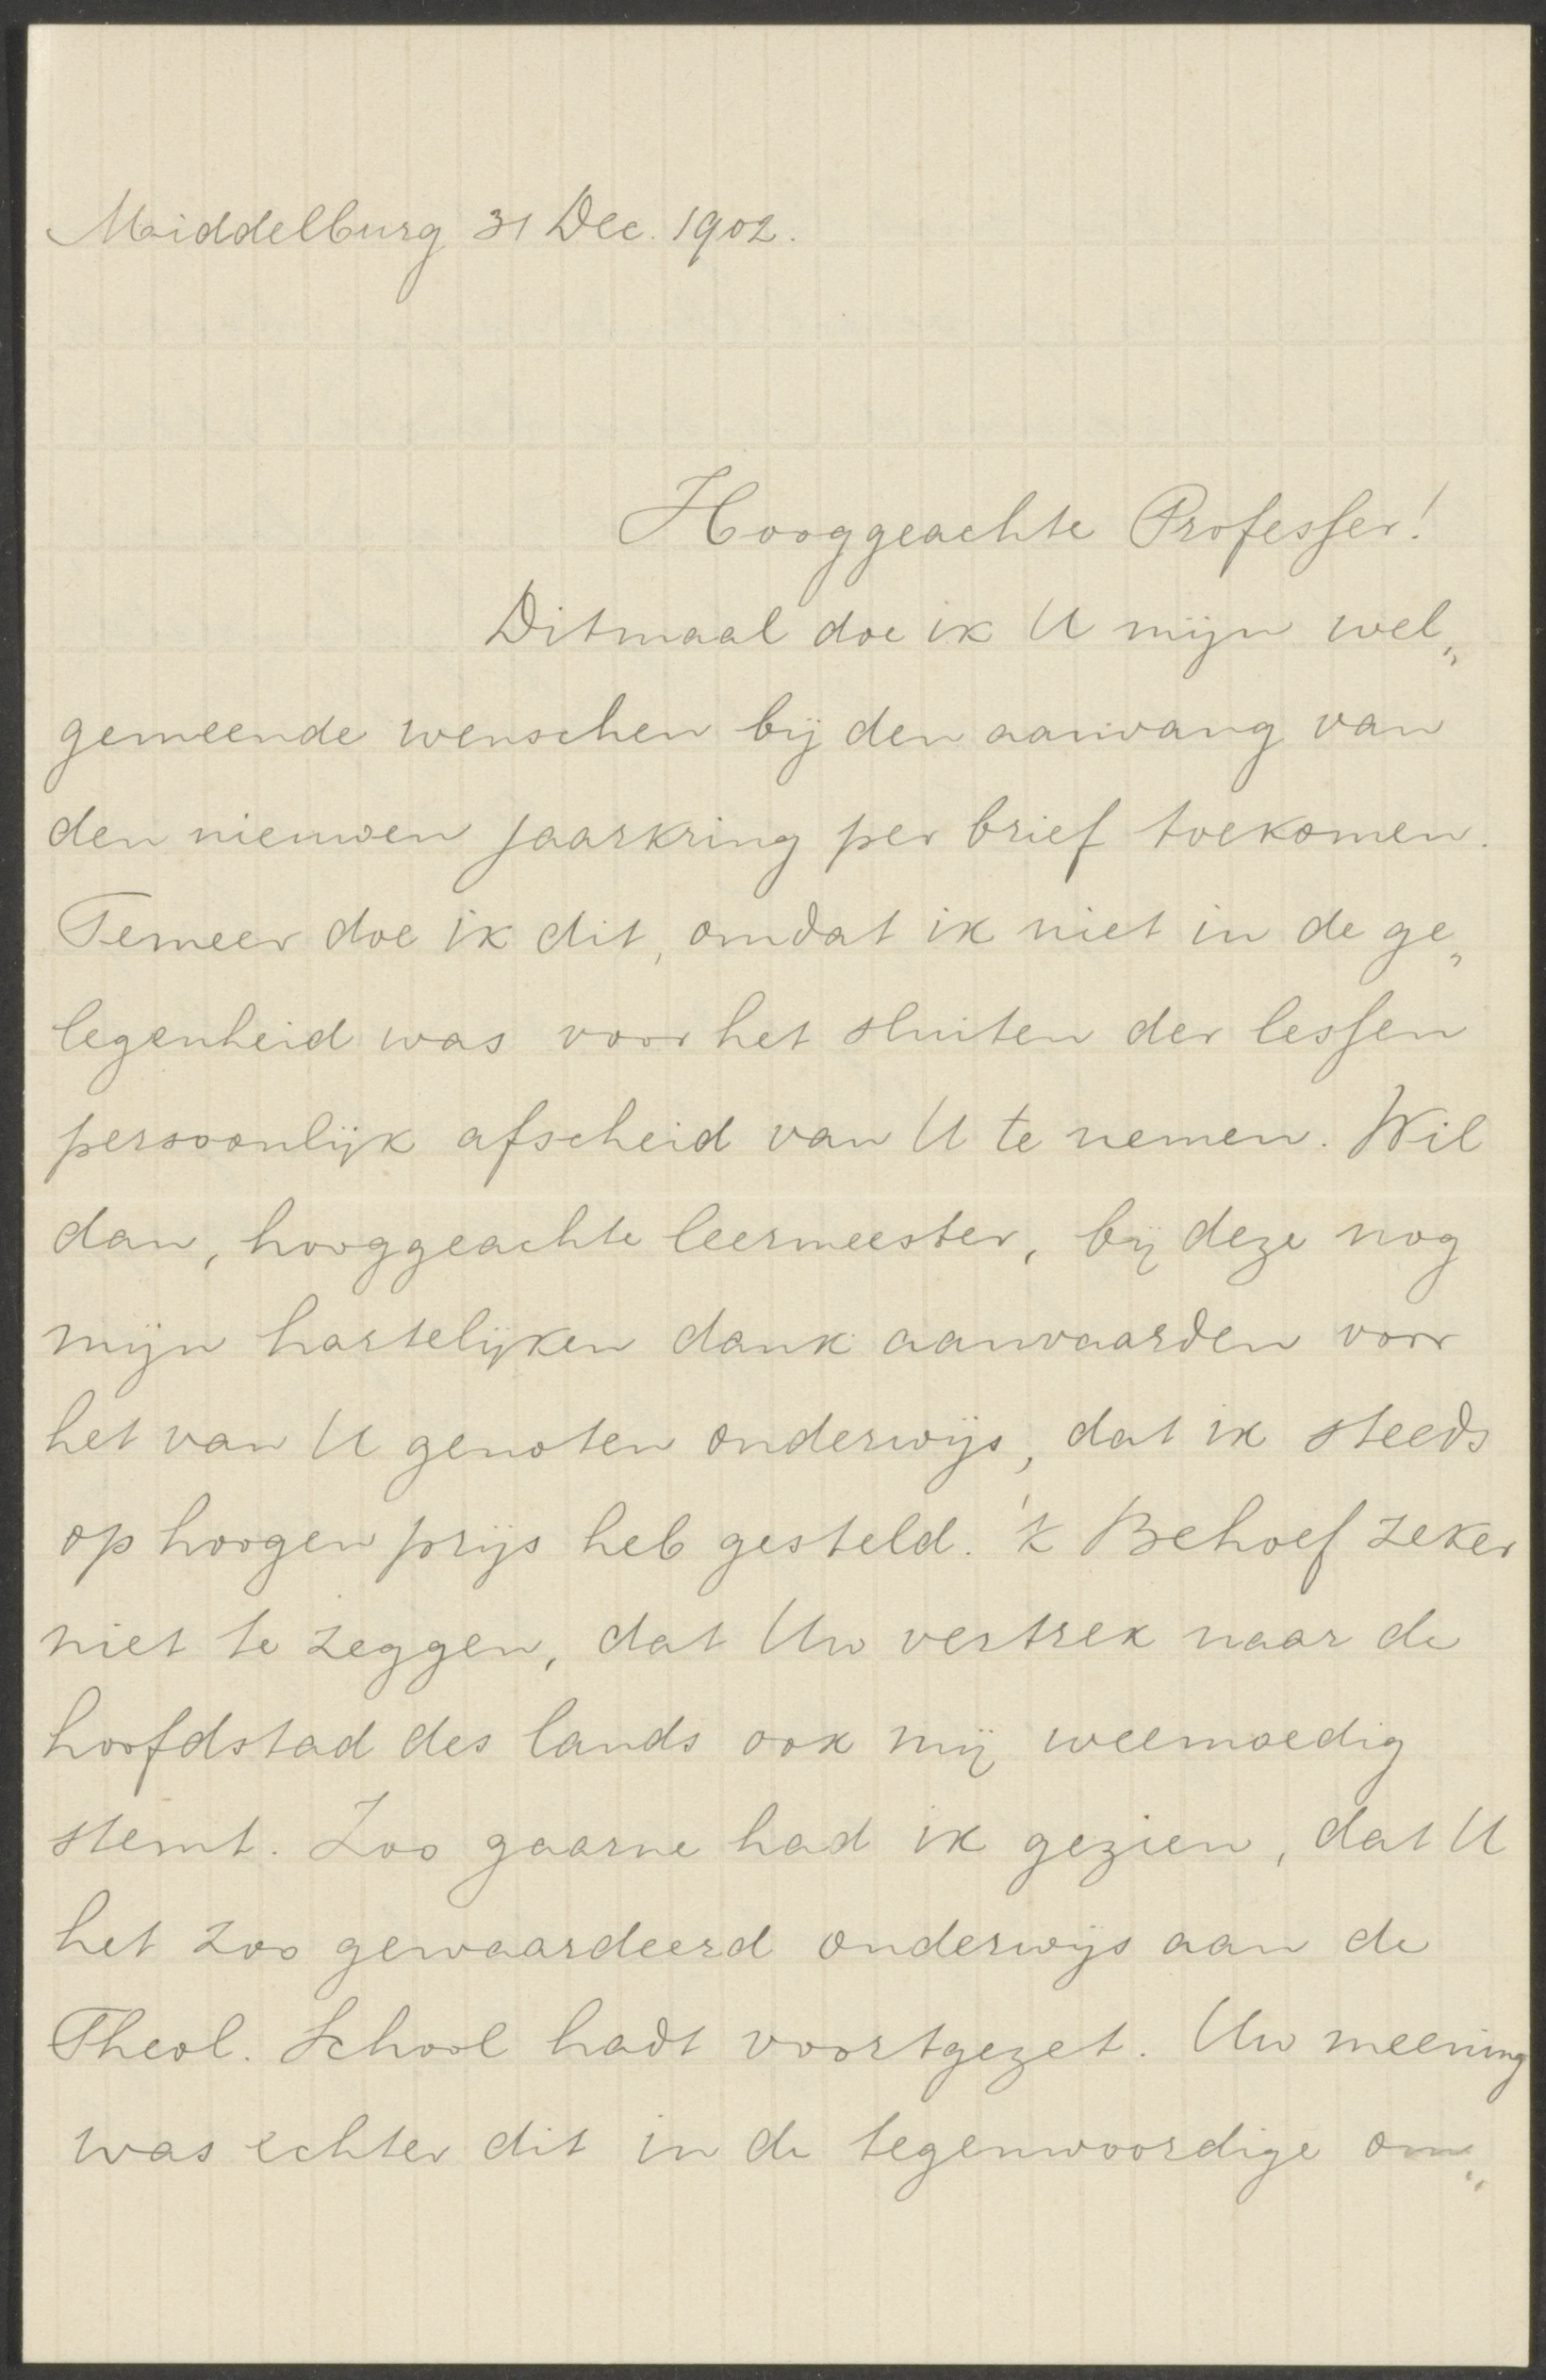 Middelburg 31 Dec. 1902.
Hooggeachte Professer!
Ditmaal doe ik U mijn wel„
gemeende wenschen bij den aanvang van
den nieuwen jaarkring per brief toekomen.
Temeer doe ik dit, omdat ik niet in de ge„
legenheid was voor het sluiten der lessen
persoonlijk afscheid van U te nemen. Wil
dan, hooggeachte leermeester, bij deze nog
mijn hartelijken dank aanvaarden voor
het van U genoten onderwijs, dat ik steeds
op hoogen prijs heb gesteld. 'k Behoef zeker
niet te zeggen, dat Uw vertrek naar de
hoofdstad des lands ook mij weemoedig
stemt. Zoo gaarne had ik gezien, dat U
het zoo gewaardeerd onderwijs aan de
Theol. School hadt voortgezet. Uw meening
was echter dit in de tegenwoordige om„